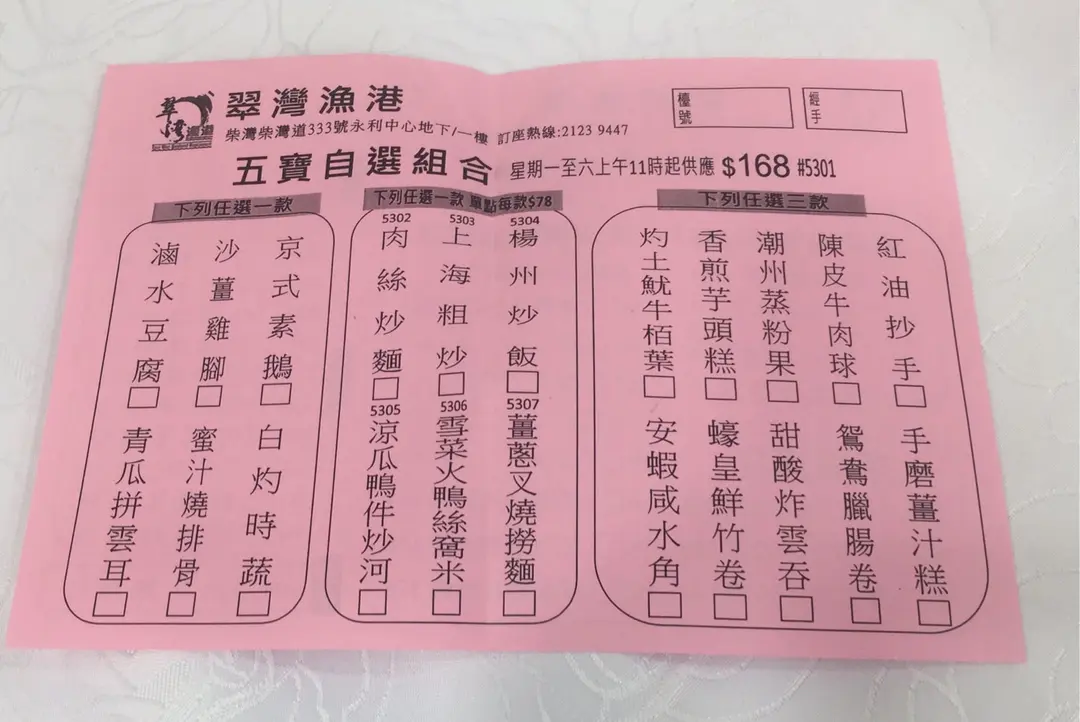 翠灣漁港
柴灣柴灣道333號永利中心地下/一樓 訂座熱線:2123 9447
檯號
經手
五寶自選組合 星期一至六上午11時起供應 $168 #5301
下列任選一款
滷水豆腐
沙薑雞腳
京式素鵝
青瓜拼雲耳
蜜汁燒排骨
白灼時蔬
下列任選一款 單點每款$78
5302
肉絲炒麵
5303
上海粗炒
5304
楊州炒飯
5305
涼瓜鴨件炒河
5306
雪菜火鴨絲窩米
5307
薑蔥叉燒撈麵
下列任選三款
灼土魷牛栢葉
香煎芋頭糕
潮州蒸粉果
陳皮牛肉球
紅油抄手
安蝦咸水角
蠔皇鮮竹卷
甜酸炸雲吞
鴛鴦臘腸卷
手磨薑汁糕